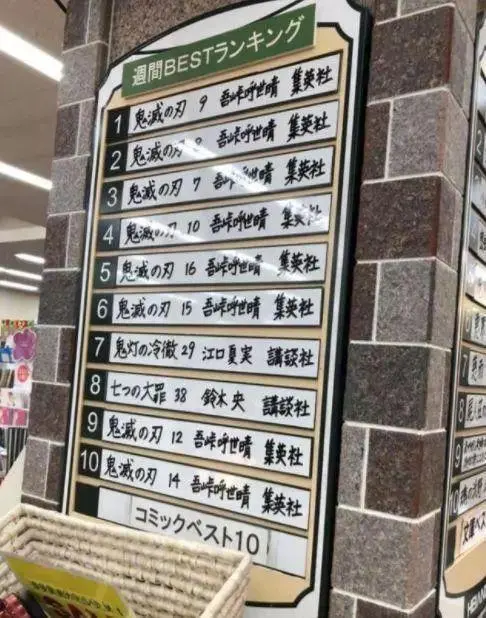 週間BESTランキング
1 鬼滅の刃 9 吾峠呼世晴 集英社
2 鬼滅の刃 吾峠呼世晴 集英社
3 鬼滅の刃 7 吾峠呼世晴 集英社
4 鬼滅の刃 10 吾峠呼世晴 集英社
5 鬼滅の刃 16 吾峠呼世晴 集英社
6 鬼滅の刃 15 吾峠呼世晴 集英社
7 鬼灯の冷徹 29 江口夏実 講談社
8 七つの大罪 38 鈴木央 講談社
9 鬼滅の刃 12 吾峠呼世晴 集英社
10 鬼滅の刃 14 吾峠呼世晴 集英社
コミックベスト10